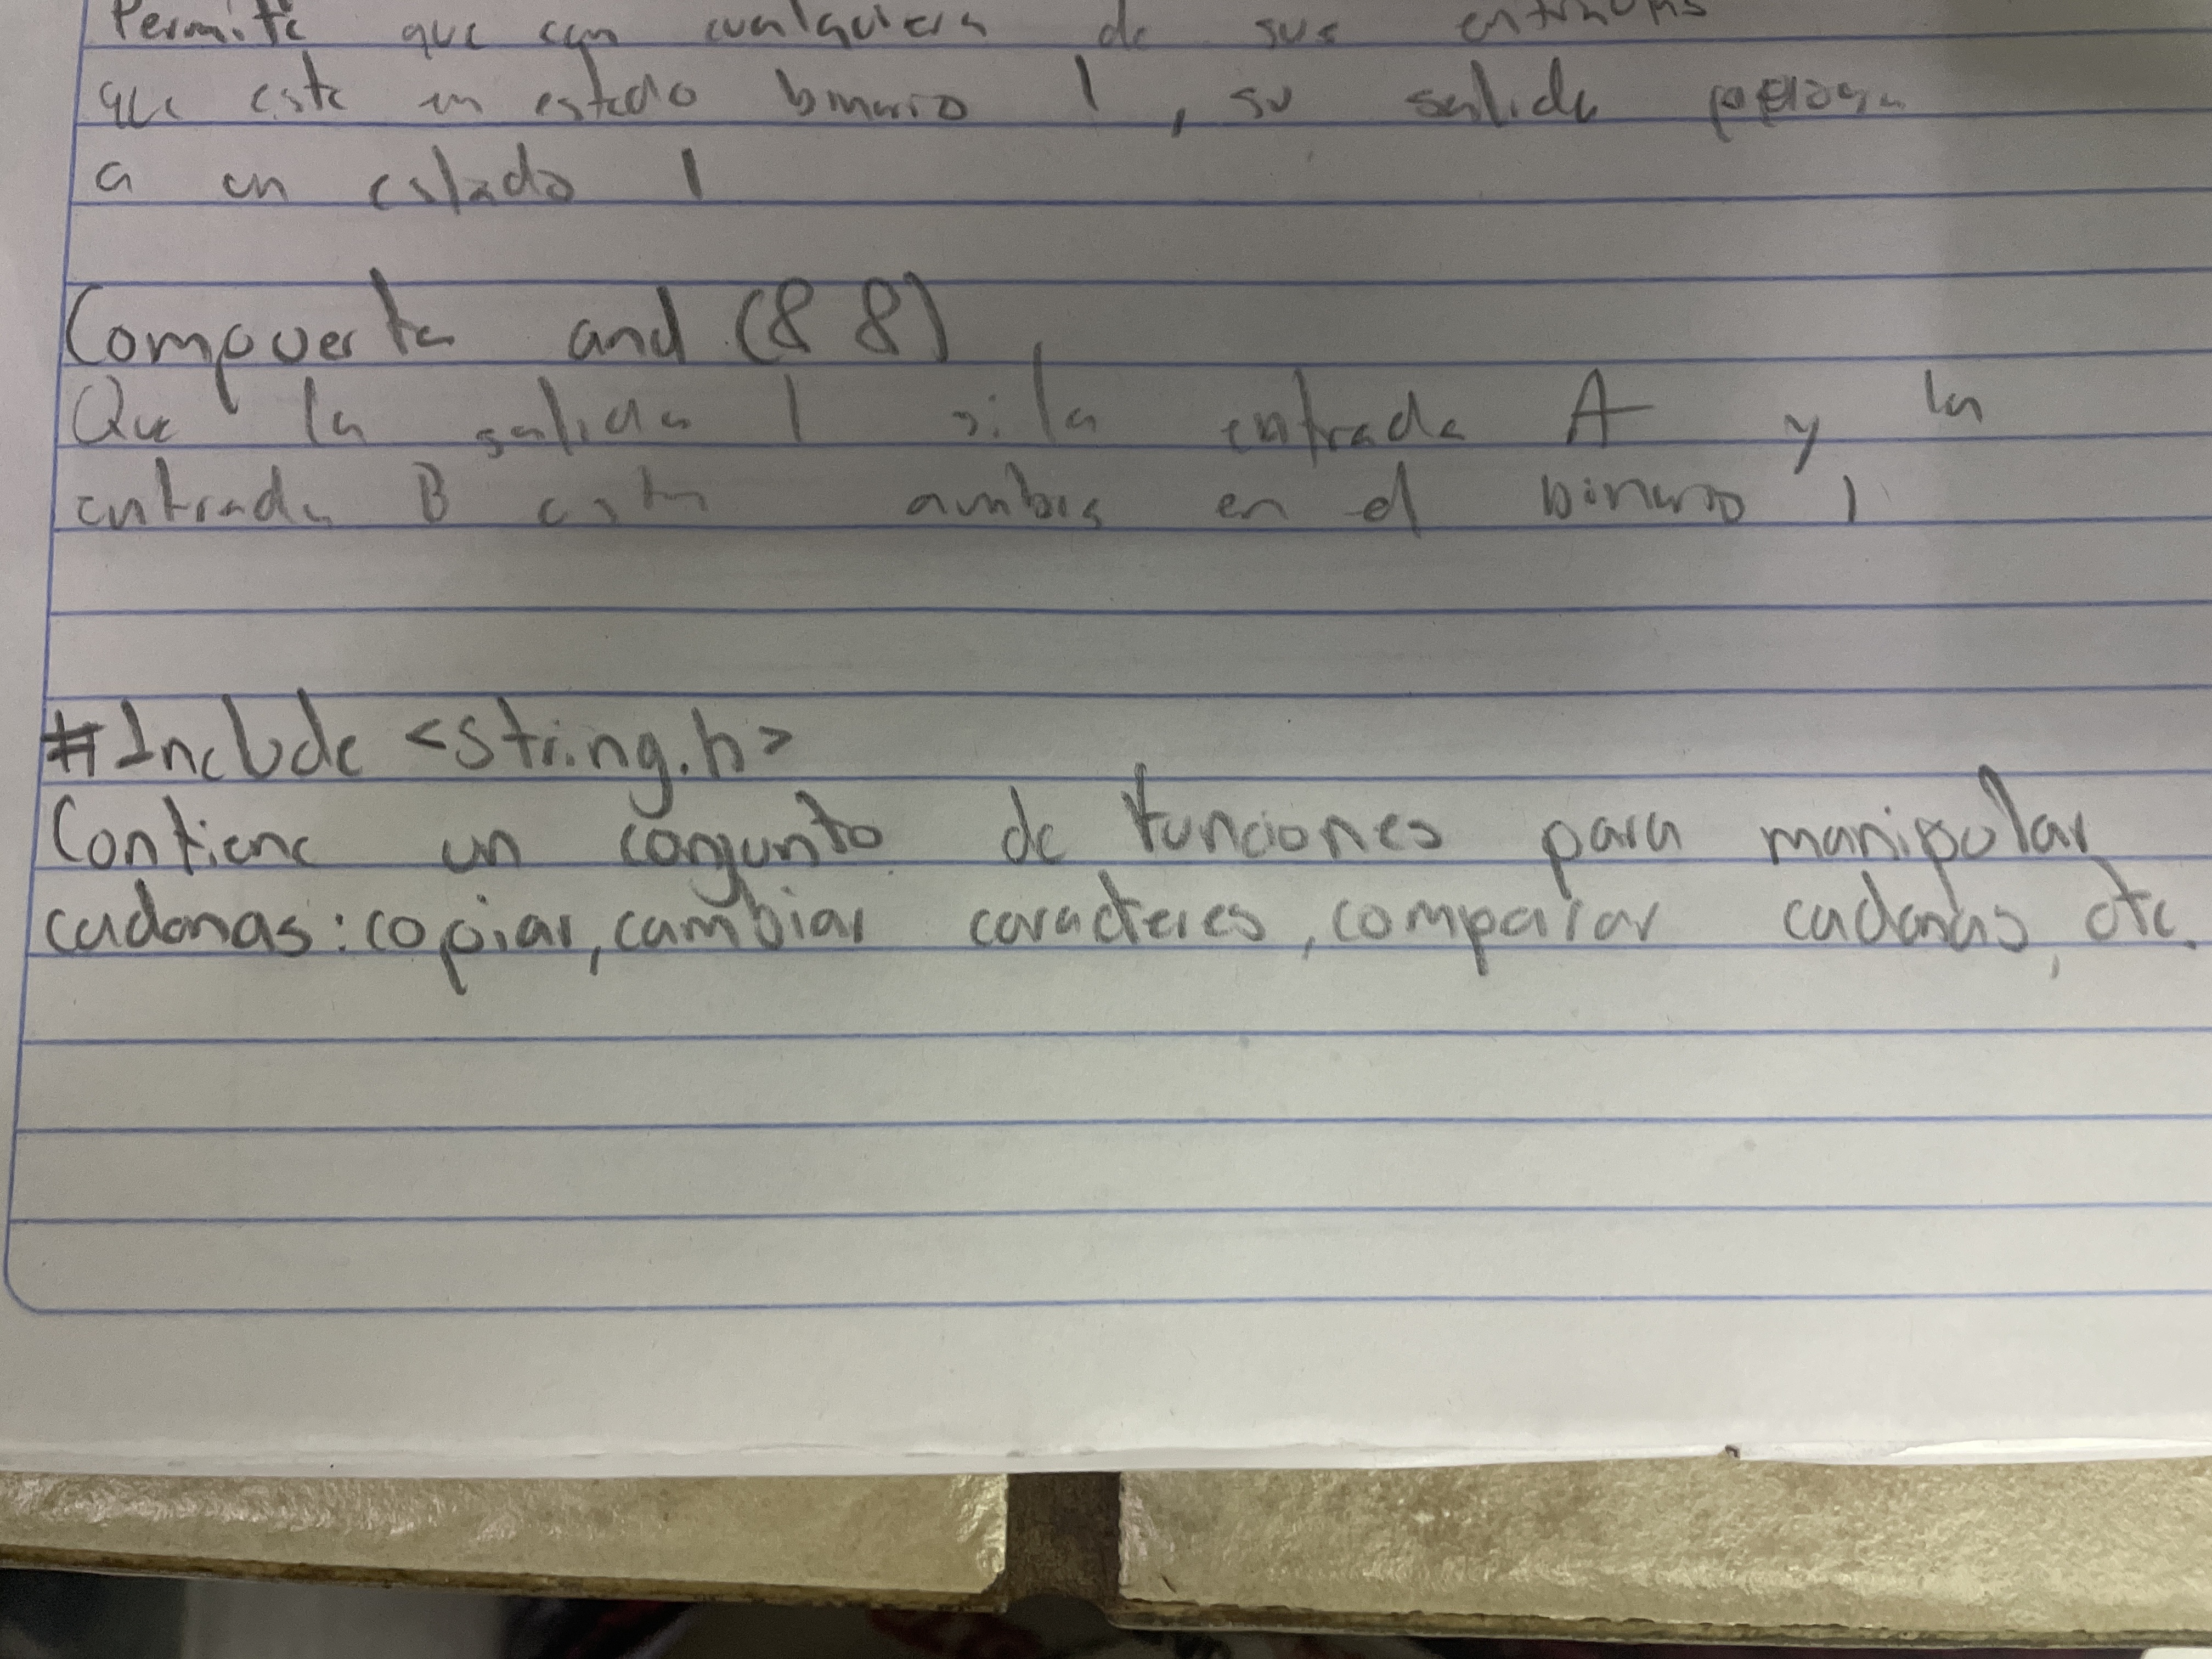 Permite que con cualquiera de sus entradas
que este en estado binario 1, su salida
a un estado 1
Compuerta and (&&)
Que la salida 1 si la entrada A y la
entrada B esta ambas en el binario 1
#Include <string.h>
Contiene un conjunto de funciones para manipular
cadenas: copiar, cambiar caracteres, comparar cadenas, etc.